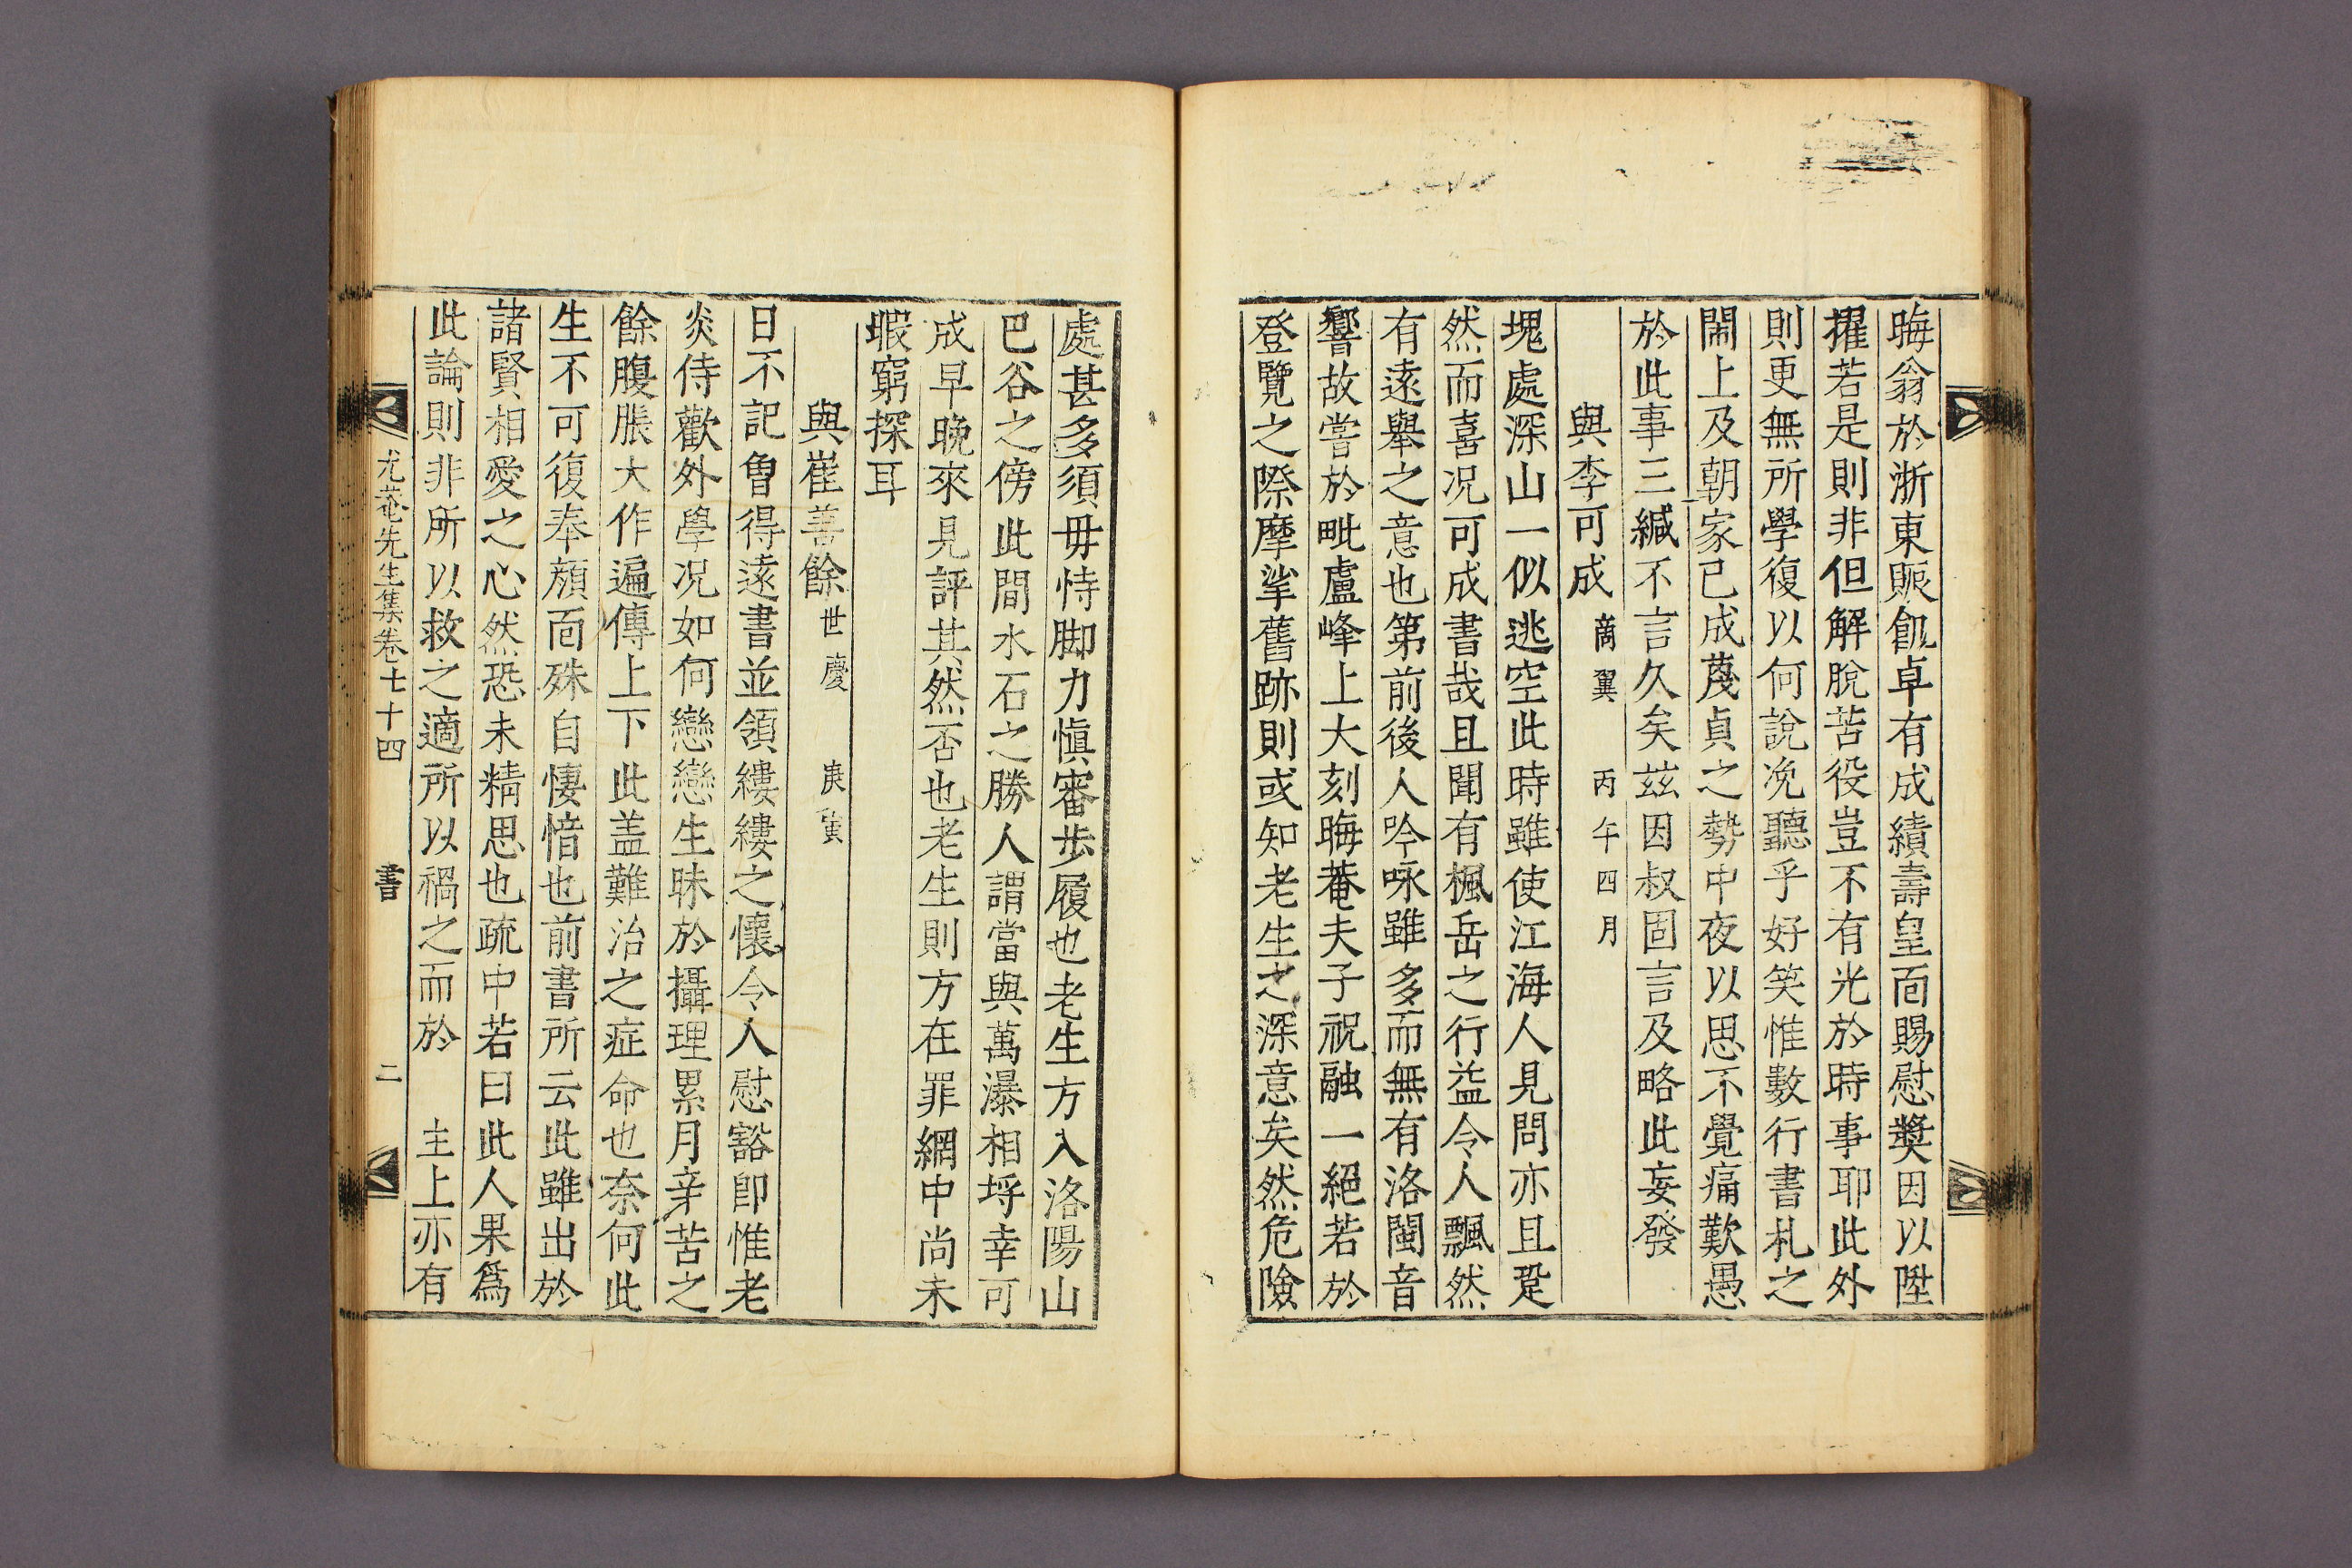 晦翁於浙東賑飢卓有成績壽皇面賜慰奬因以陞
擢若是則非但解脫苦役豈不有光於時事耶此外
則更無所學復以何說浼聽乎好笑惟數行書札之
間上及朝家已成蔑貞之勢中夜以思不覺痛歎愚
於此事三緘不言久矣玆因叔固言及略此妄發
與李可成 啇翼 丙午四月
塊處深山一似逃空此時雖使江海人見問亦且跫
然而喜况可成書哉且聞有楓岳之行益令人飄然
有遠擧之意也第前後人吟咏雖多而無有洛閩音
響故嘗於毗盧峰上大刻晦菴夫子祝融一絕若於
登覽之際摩挲舊跡則或知老生之深意矣然危險
處甚多須毋恃脚力愼審步履也老生方入洛陽山
巴谷之傍此間水石之勝人謂當與萬瀑相埒幸可
成早晩來見評其然否也老生則方在罪網中尙未
暇窮探耳
與崔善餘 世慶 庚寅
日不記曾得遠書並領縷縷之懷令人慰豁卽惟老
炎侍歡外學况如何戀戀生昧於攝理累月辛苦之
餘腹脹大作遍傳上下此盖難治之症命也奈何此
生不可復奉顔面殊自悽愔也前書所云此雖出於
諸賢相愛之心然恐未精思也疏中若曰此人果爲
此論則非所以救之適所以禍之而於 主上亦有
尤菴先生集卷七十四 書 二